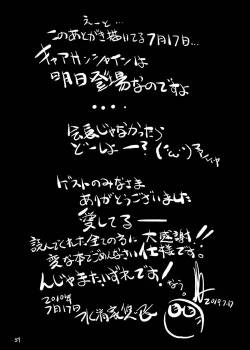 えーと…
このあとがき描いてる7月17日…
キャアサンシャインは
明日登場なのですよ
・・・・
会長じゃなかったら
どーしよー?
ゲストのみなさま
ありがとうございました
愛してるー
読んでくれた全ての方に大感謝!!
変な本でごめんなさい仕様です。
んじゃまたいずれです!
2010年
7月17日
57